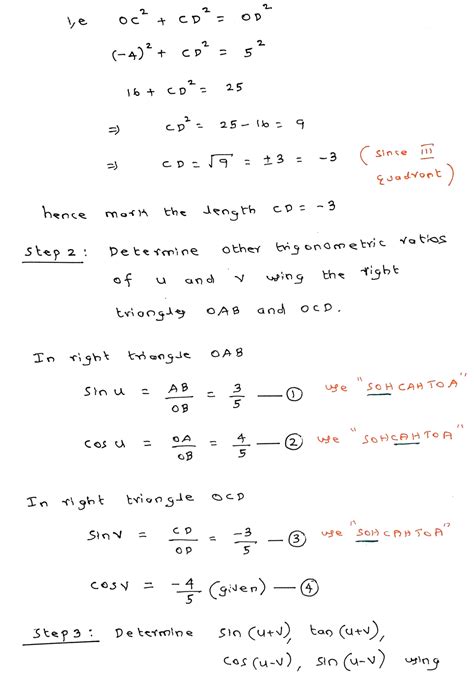 i,e OC² + CD² = OD²
(-4)² + CD² = 5²
16 + CD² = 25
⇒ CD² = 25 - 16 = 9
⇒ CD = √9 = ±3 = -3 (since III quadrant)
hence mark the length CD = -3
Step 2 : Determine other trigonometric ratios
of u and v using the right
triangles OAB and OCD.
In right triangle OAB
Sin u = AB/OB = 3/5 — ① use "SOHCAHTOA"
cos u = OA/OB = 4/5 — ② use "SOHCAHTOA"
In right triangle OCD
Sin v = CD/OD = -3/5 — ③ use "SOHCAHTOA"
cos v = -4/5 (given) — ④
Step 3 : Determine sin (u+v), tan (u+v),
cos (u-v), sin (u-v) using